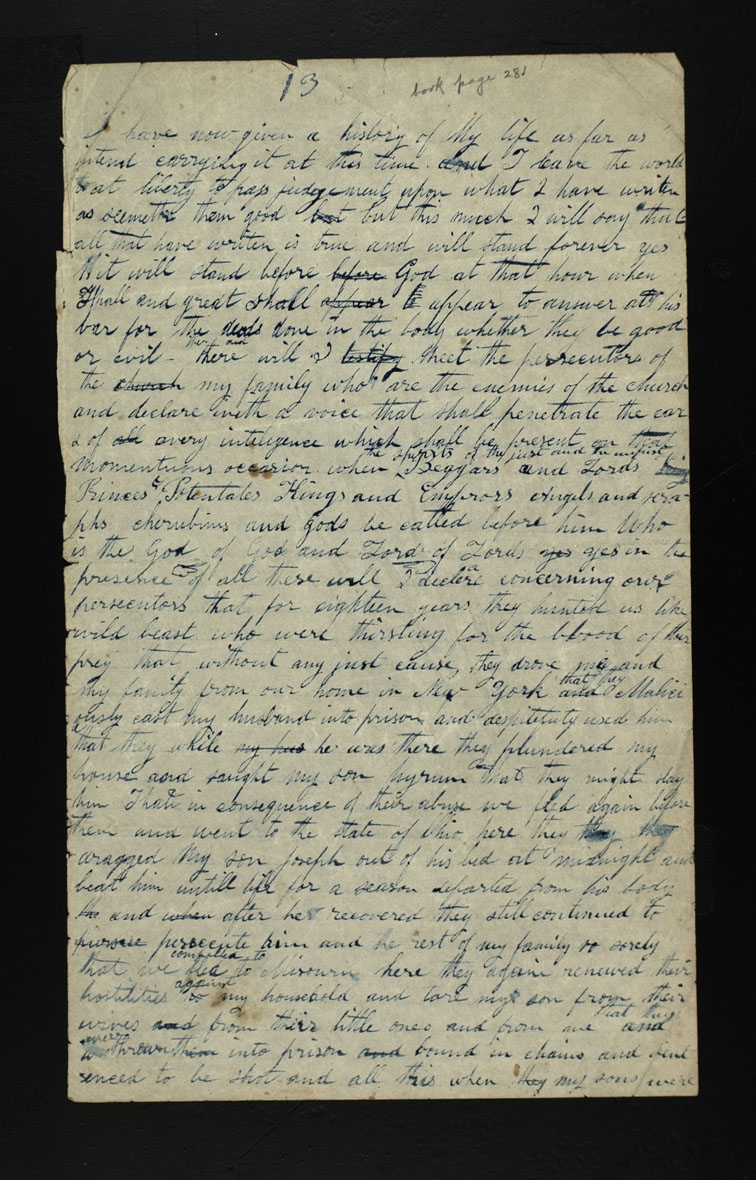 13
book page 281
I have now given a history of My life as far as
intend carrying it at this time. And I leave the world
at liberty to pass judgement upon what I have writen
as seemeth them good but but this much I will say that
all that have written is true and will stand forever yes
it will stand before before God at that hour when
small and great shall appear to appear to answer at his
bar for the deeds done in the body whether they be good
or evil - there and there will I testify meet the persecutors of
the church my family who are the enemies of the church
and declare with a voice that shall penetrate the ear
s of all every inteligence which shall be present on that
momentuous occasion when the spirits of the just and the unjust Beggars and Lords
Princes & Potentates Kings and Emperors Angels and sera
phs cherubims and gods be called before him Who
is the God of God and Lord of Lords yes yes in the
presence of all these will I declare concerning our
persecutors that for eighteen years they hunted us like
wild beast who were thirsting for the blood of their
prey that without any just cause they drove me and
my family from our home in New York and that they Malici
ously cast my husband into prison and despitefuly used him
that they while my hus he was there they plundered my
house and saught my son hyrum that they might slay
him That in consequence of their abuse we fled again before
them and went to the state of Ohio here they they they
dragged My son Joseph out of his bed at midnight and
beat him untill life for a season departed from his body
and when after he recovered they still continued to
pursue persecute him and the rest of my family so sorely
that we fled compelled to to Missourin here they again renewed their
hostilities to against my household and tore my son from their
wives and from their little ones and from me and that they
were thrown them into prison and bound in chains and sent
enced to be shot and all this when they my sons were